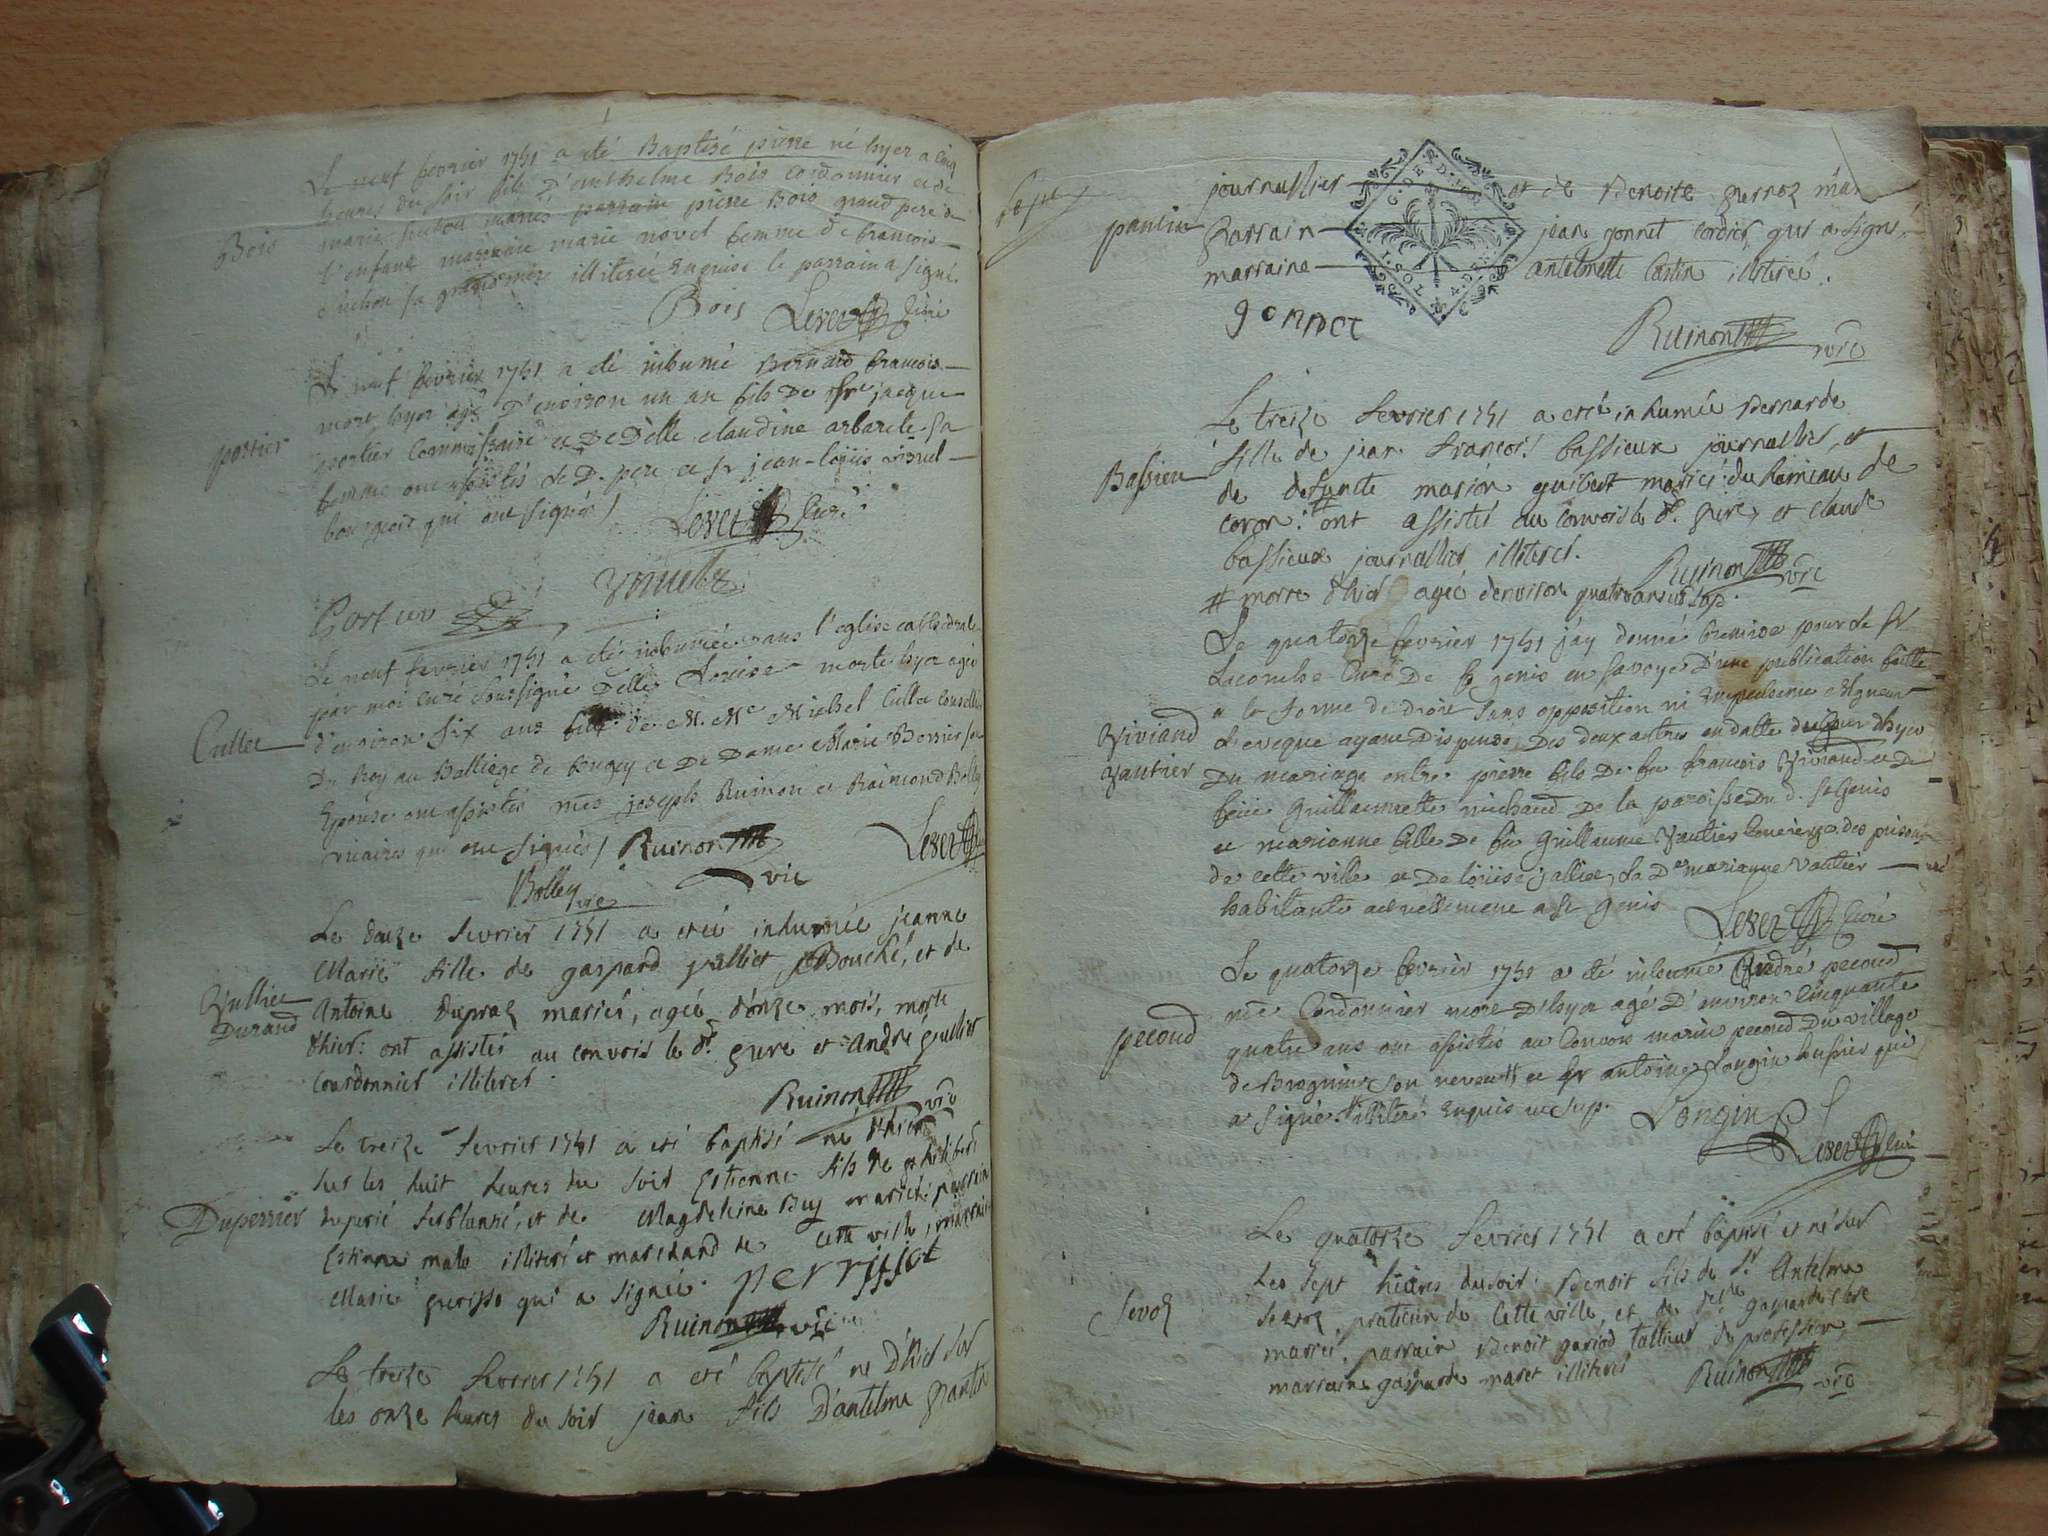 Le neuf fevrier 1751 a eté Baptisé pierre né hyer a cinq
heures du soir fils D'anthelme Bois cordonnier et de
marie mariés parrain pierre Bois grand pere de
Bois
l'enfant marraine marie novel femme de francois
sa grand mere illiterée Enquise le parrain a signé.
Bois Levez Curé
Le neuf fevrier 1751 a eté inhumé Bernard francois
mort hyer agé D'environ un an fils De Sr jacque
portier
portier Commissaire et De Delle claudine arbarete sa
femme ont assistés le D. pere et sr jean-loüis
bourgeois qui ont signés
Levez Curé
Portier
Le neuf fevrier 1751 a eté inhumée dans l'eglise cathedrale
par moi curé soussigné Delle Louise morte hyer agée
Cullet
d'environ six ans fille de M. Me Michel Cullet Conseiller
Du Roy au Balliage de bougey et De Dame Marie Bernier son
Epouse ont assistés mes joseph Ruinon et Raimond Bolley
vicaires qui ont signés Ruinon Levez
Bolley vre vic
Le douze fevrier 1751 a eteé inhumée jeanne
Marie fille de gaspard vulliet Bouché, et de
Vulliet
Durand
Antoine Dupraz mariés, ageé d'onze mois, morte
d'hier: ont assistés au convois le dt. pere et André
Courdonnier illiterés.
Ruinon vre
Le treize fevrier 1751 a eté baptisé né d'hier
sur les huit heures du soir Estienne fils de philibert
Duperrier
duperié ferblantié, et de Magdeleine Buy mariés: parrain
Estienne malo illiteré et marchand de cette ville, marraine
Marie perisso qui a signée. perrisset
Ruinon vre
Le treize fevrier 1751 a eté baptisé né D'hier sur
les onze heures du soir jean fils D'antelme pantin
journallier et de Benoite pernoz
pantin
parrain jean gonnet Cordier qui a signé,
marraine antoinette Castin illiterée.
gonnet
Ruinon vre
Le treize fevrier 1751 a eteé inhumée Bernarde
Bassieu
fille de jean francois bassieux journallier, et
de defuncte marion guibert mariés du hameau de
coron: # ont assistés au convois le dt. pere, et claude
bassieux journallier illiterés.
Ruinon vre
# morte d'hier ageé d'environ quatre ans
Le quatorze fevrier 1751 j'ay donné Remise pour le Sr
Lacombe Curé De st genis en savoye D'une publication faitte
a la forme de droit sans opposition ni Empechement Mgneur
Viviand
Vautier
L'eveque ayant Dispensé Des deux autres en datte du jour d'hyer
Du mariage entre pierre fils De fu francois Viviand et De
feüe Guillaumette michaud De la paroisse Du d. st Genis
et marianne fille De fu Guillaume Vautier Concierge des prisons
de cette ville et De loüise jalliet, la De marianne Vautier
habitante actuellement a st genis
Levez Curé
Le quatorze fevrier 1751 a eté inhumé André pecoud
me Cordonnier mort D'hyer agé D'environ Cinquante
pecoud
quatre ans ont assistés au Convois marin pecoud Du village
de Brognin son neveu # et Sr antoine Longin huissier qui
a signé # illiteré Enquis
Longin
Levez Curé
Le quatorze fevrier 1751 a eté baptisé et né sur
Les sept heures du soir: Benoit fils de Sr Antelme
Sevoz
Sevoz praticien de cette ville, et de gasparde
mariés, parrain Benoit gariod talieur de profession,
marraine gasparde maret illiterés Ruinon vre